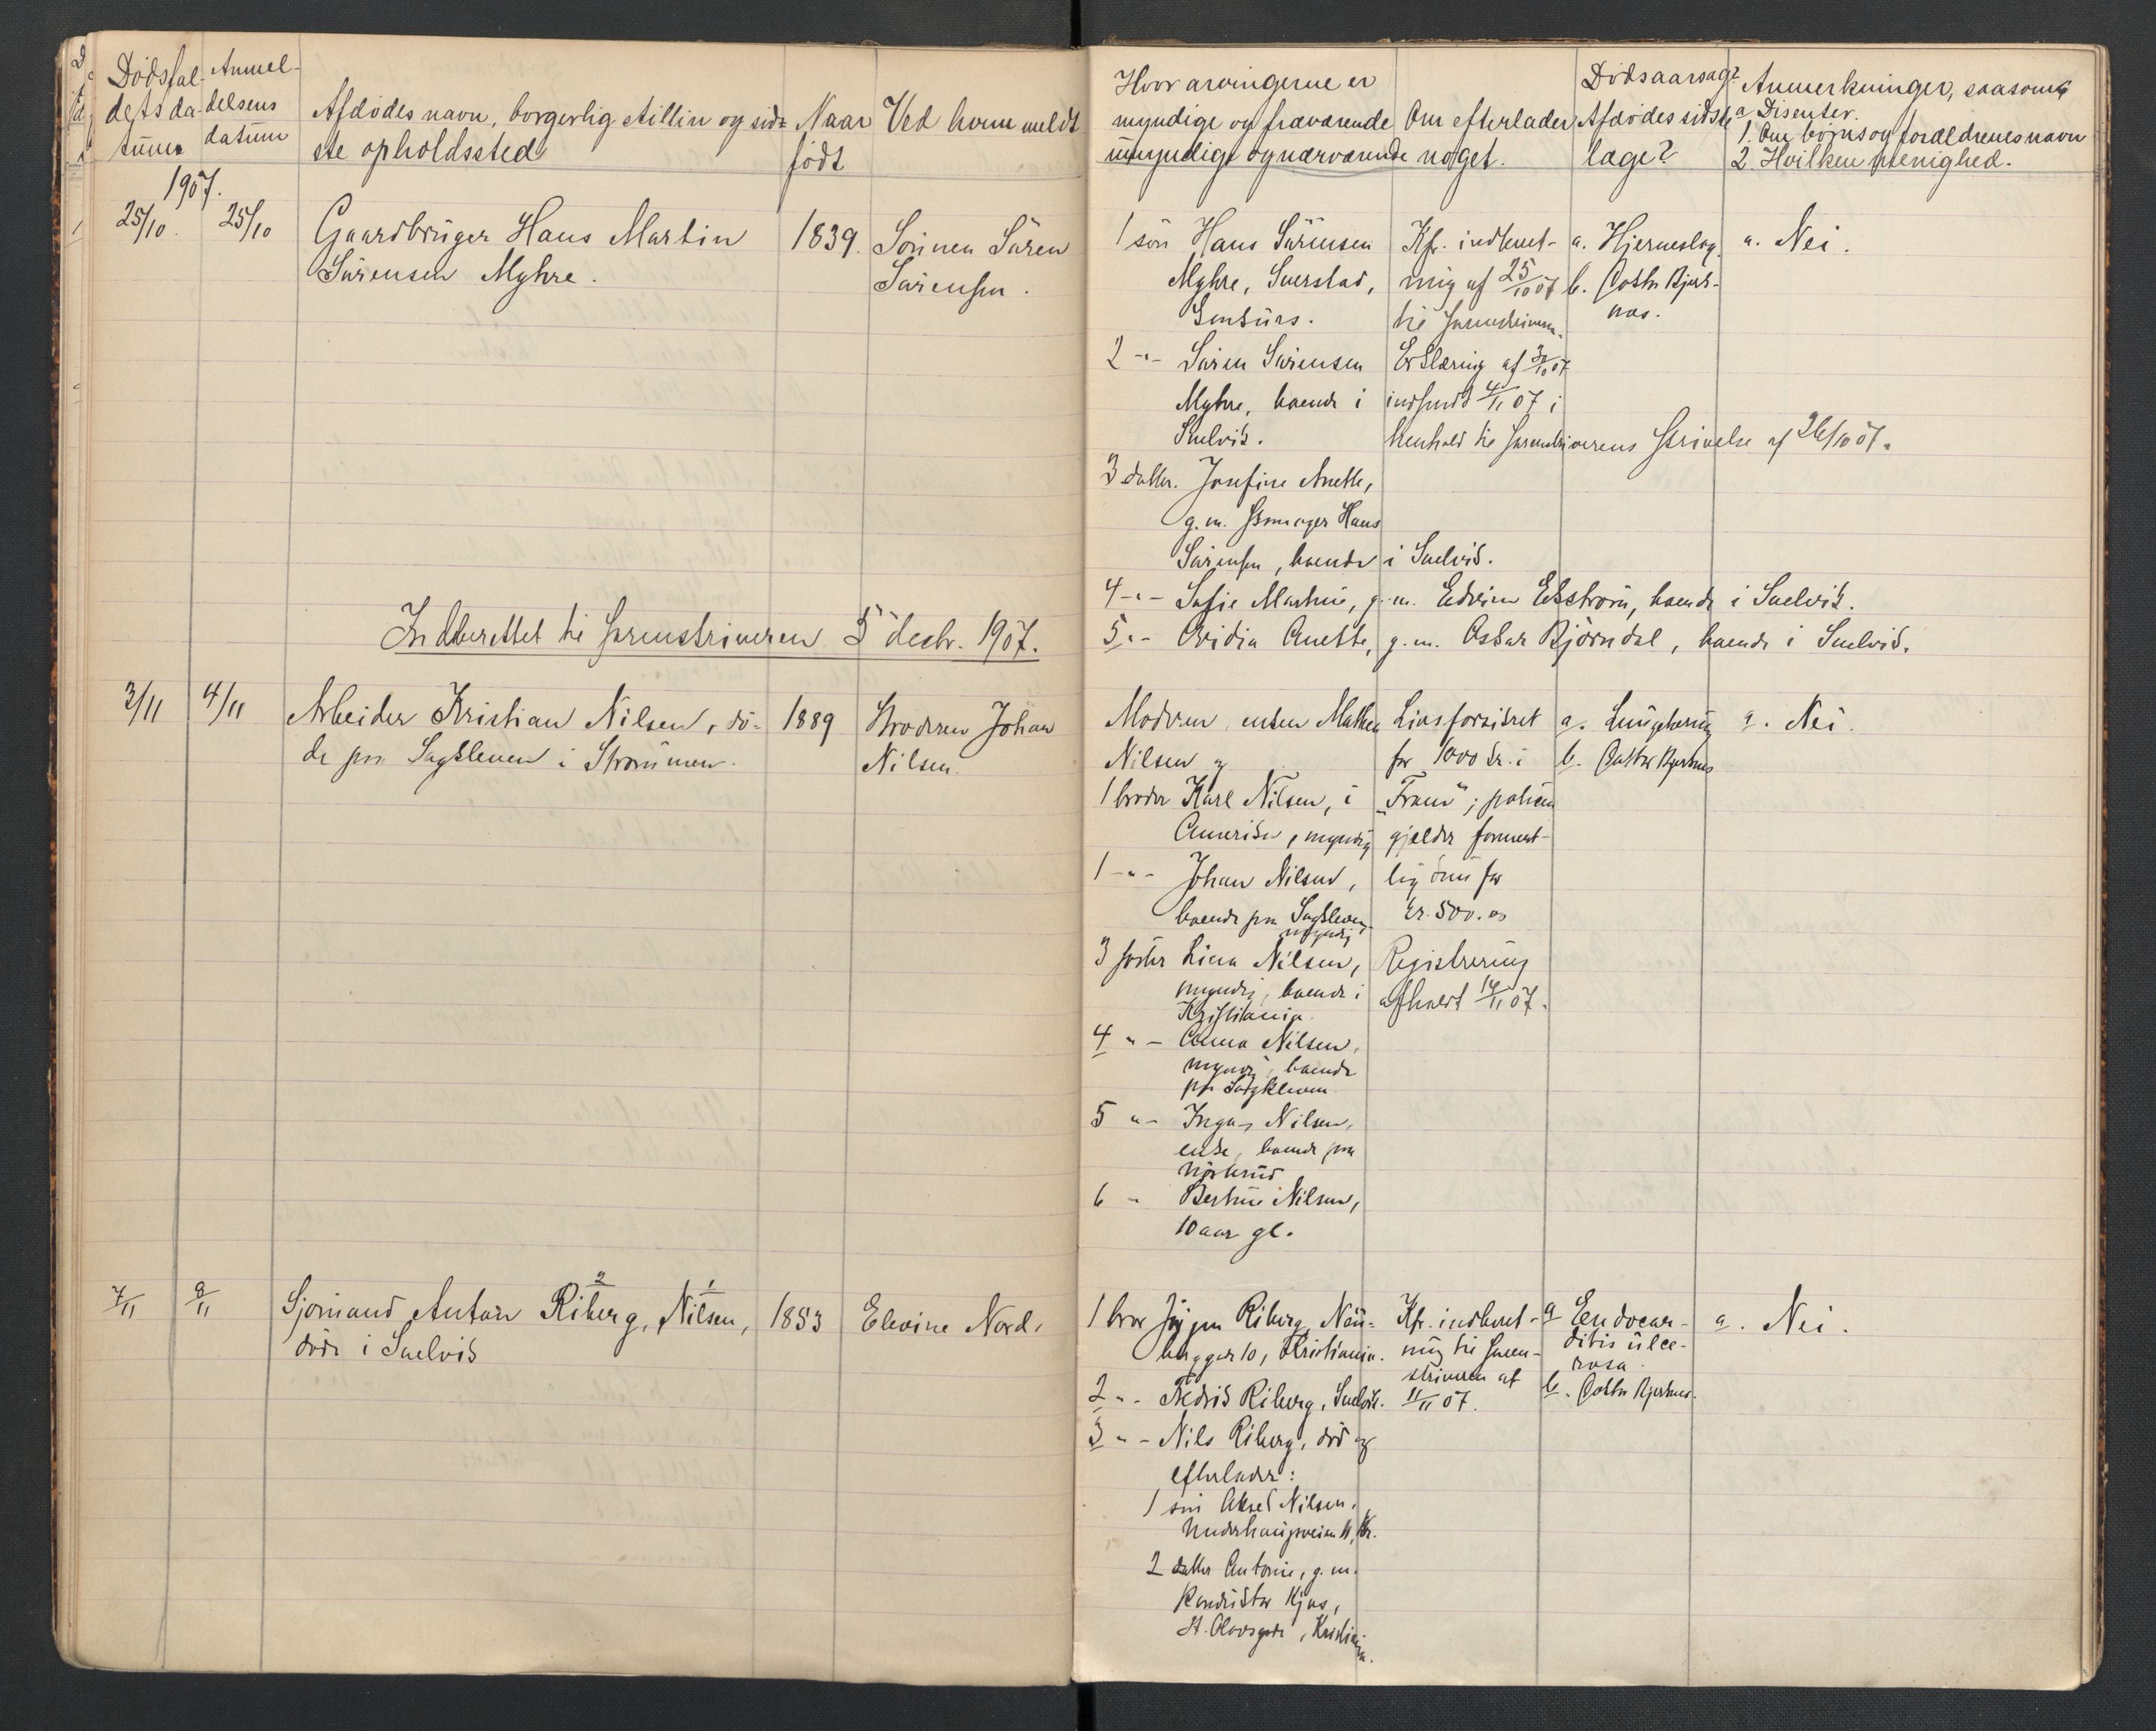 Dödsfal- Anmel-
dets da- delsens
tum datum
Afdödes navn, borgerlig stillin og sid-
ste opholdssted
Naar
födt
Ved hvem meldt
Hvor arvingerne er
myndige og fraværende
umyndige og nærværende
Om efterlader
noget.
Dödsaarsag?
Afdödes sidste
læge?
Anmerkninger, saasom
a Disenter.
1. Om börns og foraldrenes navn
2. Hvilken menighed.
1907.
25/10. 25/10
Gaardbruger Hans Martin
Sörensen Myhre.
1839.
Sönnen Sören
Sörensen.
1 sön Hans Sörensen
Myhre, Sverstad,
2 -"- Sören Sörensen
Myhre, boende i
Svelvik.
3 datter. Josefine Anette,
g.m. Hans
Sörensen, boende i Svelvik.
4 -"- Sofie Martine, g.m. Edvin Ekström, boende i Svelvik.
5 "- Ovidia Anette, g.m. Oskar Björndal, boende i Svelvik.
Kfr. indberet-
ning af 25/10 07
til sorenskriveren.
Erklæring af
indsendt 4/11 07 i
henhold til sorenskriverens skrivelse af 26/10 07.
a. Hjerneslag.
b. Doktor Bjerk-
næs.
a. Nei.
Indberettet til sorenskriveren 5 decbr. 1907.
3/11 4/11
Arbeider Kristian Nilsen, dö-
de paa Sagkleven i Strömmen.
1889
Broderen Johan
Nilsen.
Moderen enken Mathea
Nilsen og
1 broder Karl Nilsen, i
Amerika, myndig
1 -"- Johan Nilsen,
boende paa Sagkleven,
myndig
3 söster Lina Nilsen,
myndig, boende i
Kristiania.
4 "- Anna Nilsen,
myndig, boende
paa Sagkleven.
5 "- Inga Nilsen,
enke, boende paa
6 " Bertine Nilsen,
10 aar gl.
Livsforsikret
for 1000 kr. i
"Fram"; policen
gjelder forment-
lig kun for
kr. 500.00
Registrering
afholdt 14/11 07.
a. Lungeberg
b. Doktor Bjerknes
a. Nei.
7/11 8/11
Sjömand Anton Riberg, Nilsen,
2 1
döde i Svelvik
1853
Elevine Nord.
1 bror Jörgen Riberg,
10, Kristiania.
2 "- Fredrik Riberg, Svelvik.
3 "- Nils Riberg, död og
efterlader:
1 sön Aksel Nilsen,
Underhaugsveien 11, Kr.
2 datter Antonie, g.m.
Konduktör Kjos,
St. Olavsgade, Kristiania.
Kfr. indberet-
ning til soren-
skriveren af
11/11 07.
a Endocar-
ditis ulce-
rosa.
b. Doktor Bjerknes.
a. Nei.